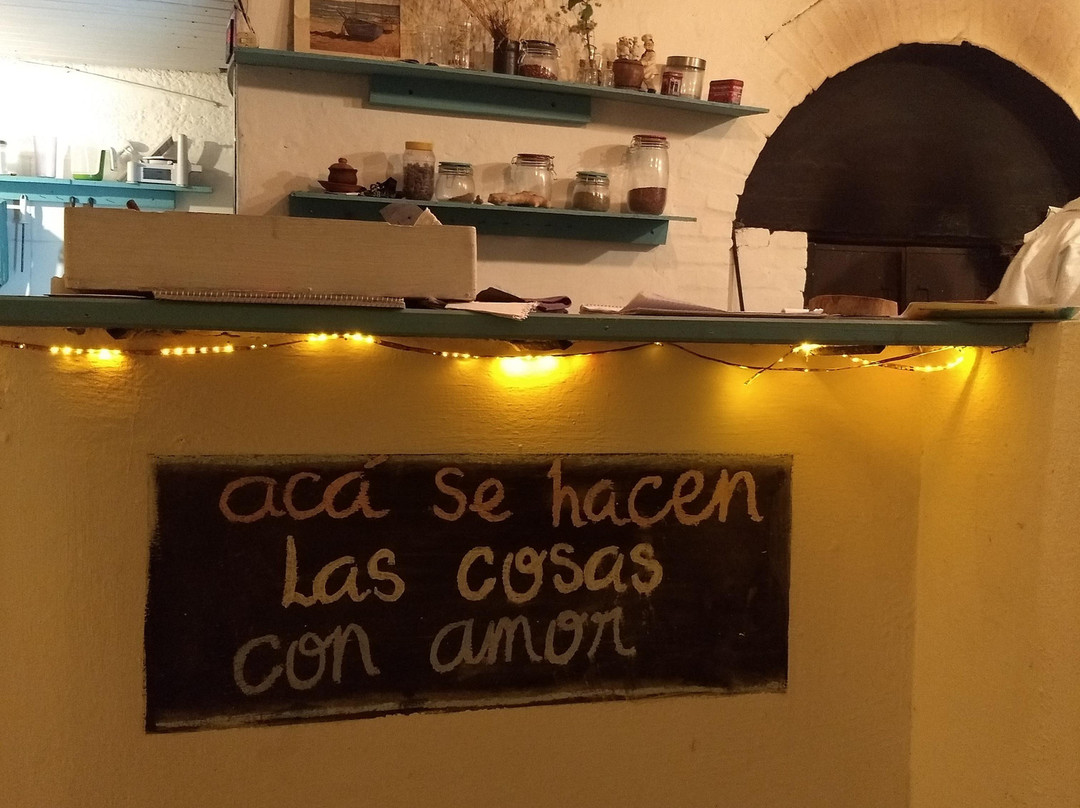 acá se hacen
Las cosas
con amor